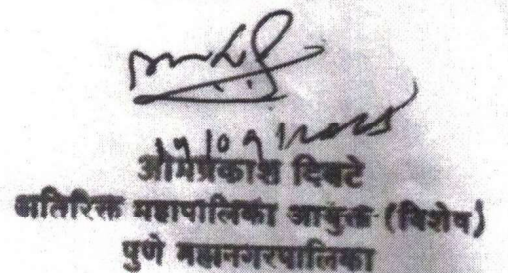 ओमप्रकाश दिवटे
अतिरिक्त महापालिका आयुक्त (विशेष)
पुणे महानगरपालिका